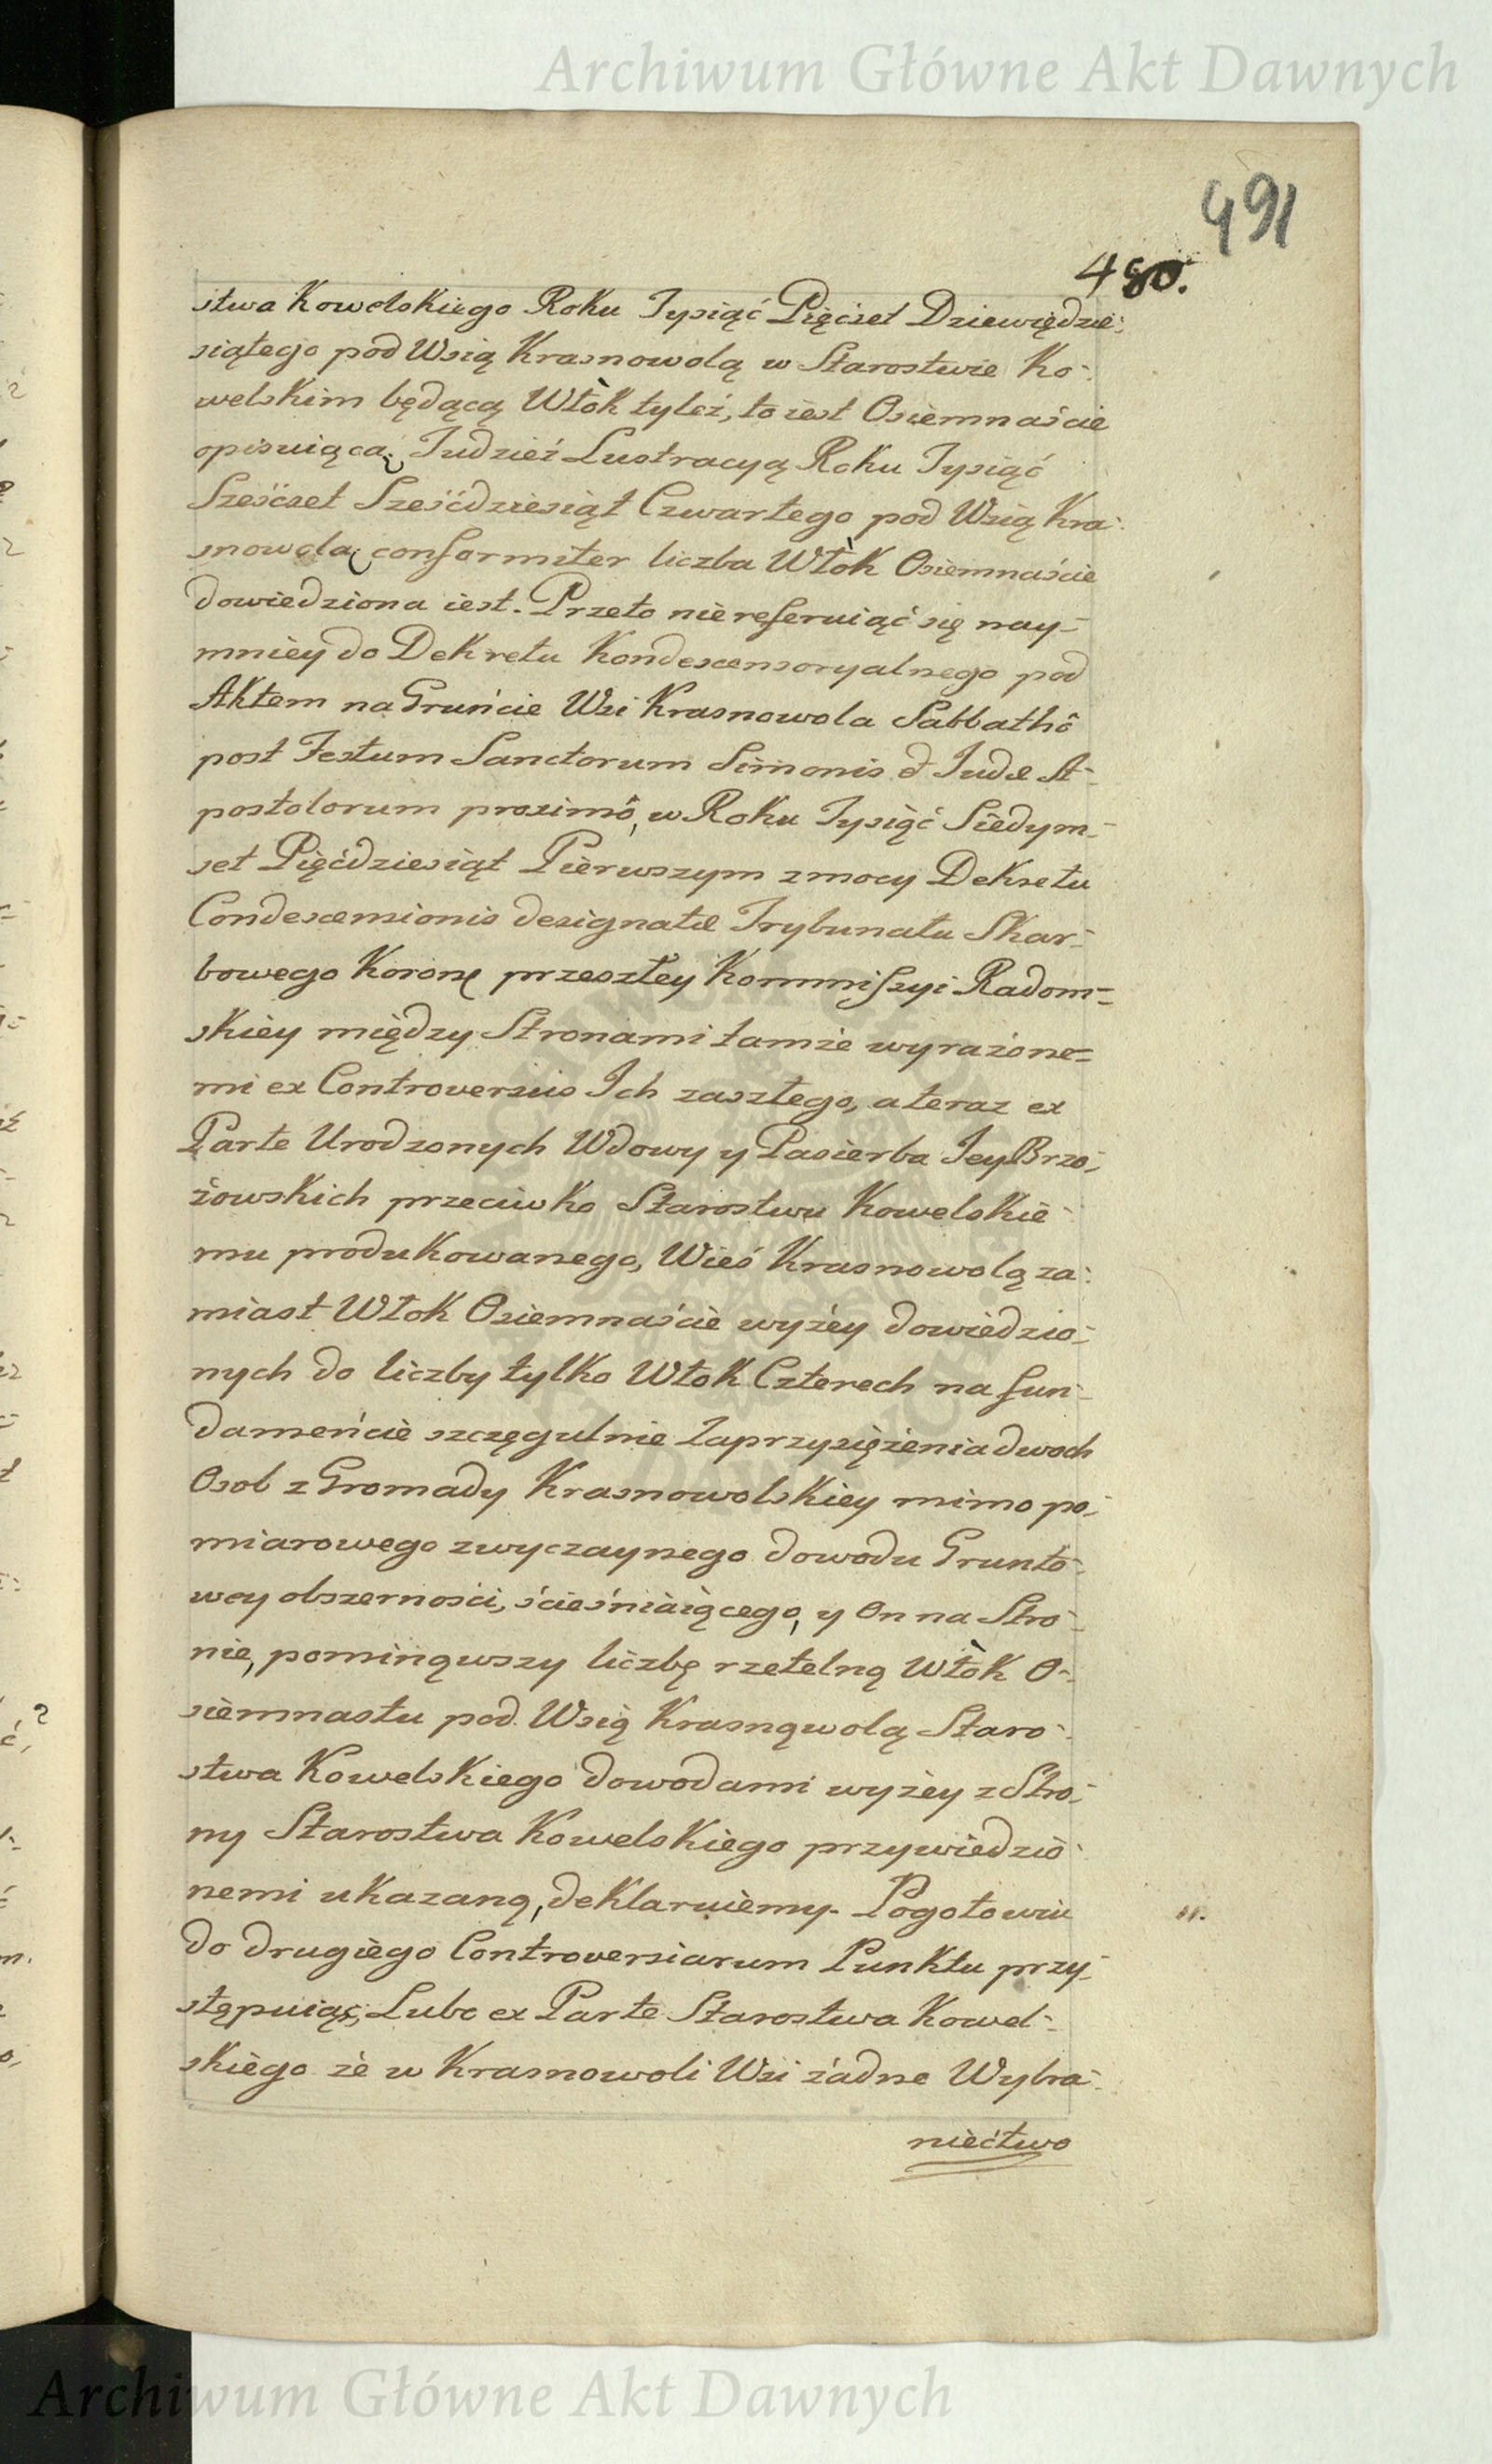 Archiwum Główne Akt Dawnych
491
480.
stwa Kowelskiego Roku Tysiąć Pięćset Dziewiędzie-
siątego pod Wsią Krasnowolą w Starostwie Ko-
welskim będącą Włók tyleż, to iest Osiemnaście
opisuiącą. Tudzież Lustracyą Roku Tysiąć
Sześćset Sześćdziesiąt Czwartego pod Wsią Kra-
snowolą conformiter liczba Włók Osiemnaście
dowiedziona iest. Przeto nie referuiąć się nay-
mniey do Dekretu Kondescensoryalnego pod
Aktem na Gruńcie Wsi Krasnowola Sabbathô
post Festum Sanctorum Simonis & Judæ A-
postolorum proximô, w Roku Tysiąć Siedym-
set Pięćdziesiąt Pierwszym z mocy Dekretu
Condescensionis designatæ Trybunatu Skar-
bowego Koronę przeszłey Kommissyi Radom-
skiey między Stronami tamże wyrażone-
mi ex Controversiis Ich zaszłego, a teraz ex
Parte Urodzonych Wdowy y Pasierba Jey Brzo-
zowskich przeciwko Starostwu Kowelskie-
mu produkowanego, Wieś Krasnowolą za-
miast Włok Osiemnaście wyżey dowiedzio-
nych do liczby tylko Włok Czterech na fun-
damenćie szczęgulnie zaprzysiężenia dwoch
Osob z Gromady Krasnowolskiey mimo po-
miarowego zwyczaynego dowodu Grunto-
wey obszernosci, ścieśniaiącego, y On na Stro-
nie, pominąwszy liczbę rzetelną Włók O-
siemnastu pod Wsią Krasnąwolą Staro-
stwa Kowelskiego dowodami wyżey z Stro-
ny Starostwa Kowelskiego przywiedzio-
nemi ukazaną, deklaruiemy. Pogotowiu
do drugiego Controversiarum Punktu przy-
stępuiąc, Lubo ex Parte Starostwa Kowel-
skiego że w Krasnowoli Wsi żadne Wybra-
niećtwo
Archiwum Główne Akt Dawnych